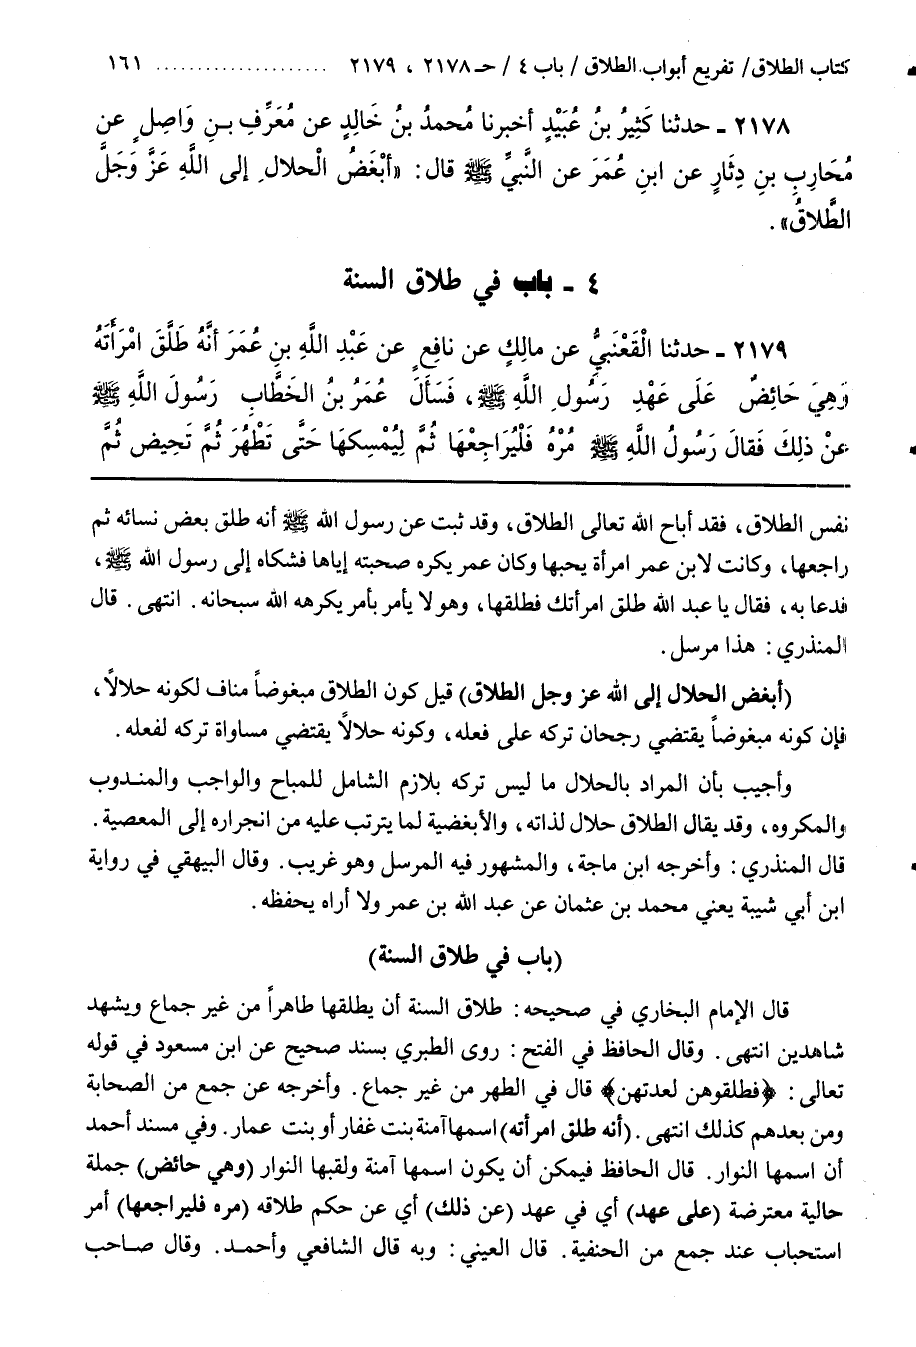 كتاب الطلاق/ تفريع أبواب الطلاق / باب ٤ / حـ ٢١٧٨ ، ٢١٧٩ ..................... ١٦١
٢١٧٨ ـ حدثنا كَثِيرُ بنُ عُبَيْدٍ أخبرنا مُحمدُ بنُ خَالِدٍ عن مُعَرِّفِ بـنِ وَاصِلٍ عن
مُحَارِبِ بنِ دِثَارٍ عن ابنِ عُمَرَ عن النَّبيِّ ﷺ قال: «أَبْغَضُ الْحلالِ إلى اللَّهِ عَزَّ وَجَلَّ
الطَّلاقُ».
٤ ـ باب في طلاق السنة
٢١٧٩ ـ حدثنا الْقَعْنَبيُّ عن مالِكٍ عن نافِعٍ عن عَبْدِ اللَّهِ بنِ عُمَرَ أنَّهُ طَلَّقَ امْرَأَتَهُ
وَهِيَ حَائِضٌ عَلَى عَهْدِ رَسُولِ اللَّهِ ﷺ، فَسَأَلَ عُمَرُ بنُ الخَطَّابِ رَسُولَ اللَّهِ ﷺ
عنْ ذلِكَ فَقالَ رَسُولُ اللَّهِ ﷺ مُرْهُ فَلْيُرَاجِعْهَا ثُمَّ لِيُمْسِكهَا حَتَّى تَطْهُرَ ثُمَّ تَحِيض ثُمَّ
نفس الطلاق، فقد أباح الله تعالى الطلاق، وقد ثبت عن رسول الله ﷺ أنه طلق بعض نسائه ثم
راجعها، وكانت لابن عمر امرأة يحبها وكان عمر يكره صحبته إياها فشكاه إلى رسول الله ﷺ،
فدعا به، فقال يا عبد الله طلق امرأتك فطلقها، وهو لا يأمر بأمر يكرهه الله سبحانه. انتهى. قال
المنذري: هذا مرسل.
(أبغض الحلال إلى الله عز وجل الطلاق) قيل كون الطلاق مبغوضاً مناف لكونه حلالاً،
فإن كونه مبغوضاً يقتضي رجحان تركه على فعله، وكونه حلالاً يقتضي مساواة تركه لفعله.
وأجيب بأن المراد بالحلال ما ليس تركه بلازم الشامل للمباح والواجب والمنـدوب
والمكروه، وقد يقال الطلاق حلال لذاته، والأبغضية لما يترتب عليه من انجراره إلى المعصية.
قال المنذري: وأخرجه ابن ماجة، والمشهور فيه المرسل وهو غريب. وقال البيهقي في رواية
ابن أبي شيبة يعني محمد بن عثمان عن عبد الله بن عمر ولا أراه يحفظه.
(باب في طلاق السنة)
قال الإمام البخاري في صحيحه: طلاق السنة أن يطلقها طاهراً من غير جماع ويشهد
شاهدين انتهى. وقال الحافظ في الفتح: روى الطبري بسند صحيح عن ابن مسعود في قوله
تعالى: ﴿فطلقوهن لعدتهن﴾ قال في الطهر من غير جماع. وأخرجه عن جمع من الصحابة
ومن بعدهم كذلك انتهى. (أنه طلق امرأته) اسمها آمنة بنت غفار أو بنت عمار. وفي مسند أحمد
أن اسمها النوار. قال الحافظ فيمكن أن يكون اسمها آمنة ولقبها النوار (وهي حائض) جملة
حالية معترضة (على عهد) أي في عهد (عن ذلك) أي عن حكم طلاقه (مره فليراجعها) أمر
استحباب عند جمع من الحنفية. قال العيني: وبه قال الشافعي وأحمـد. وقال صـاحب